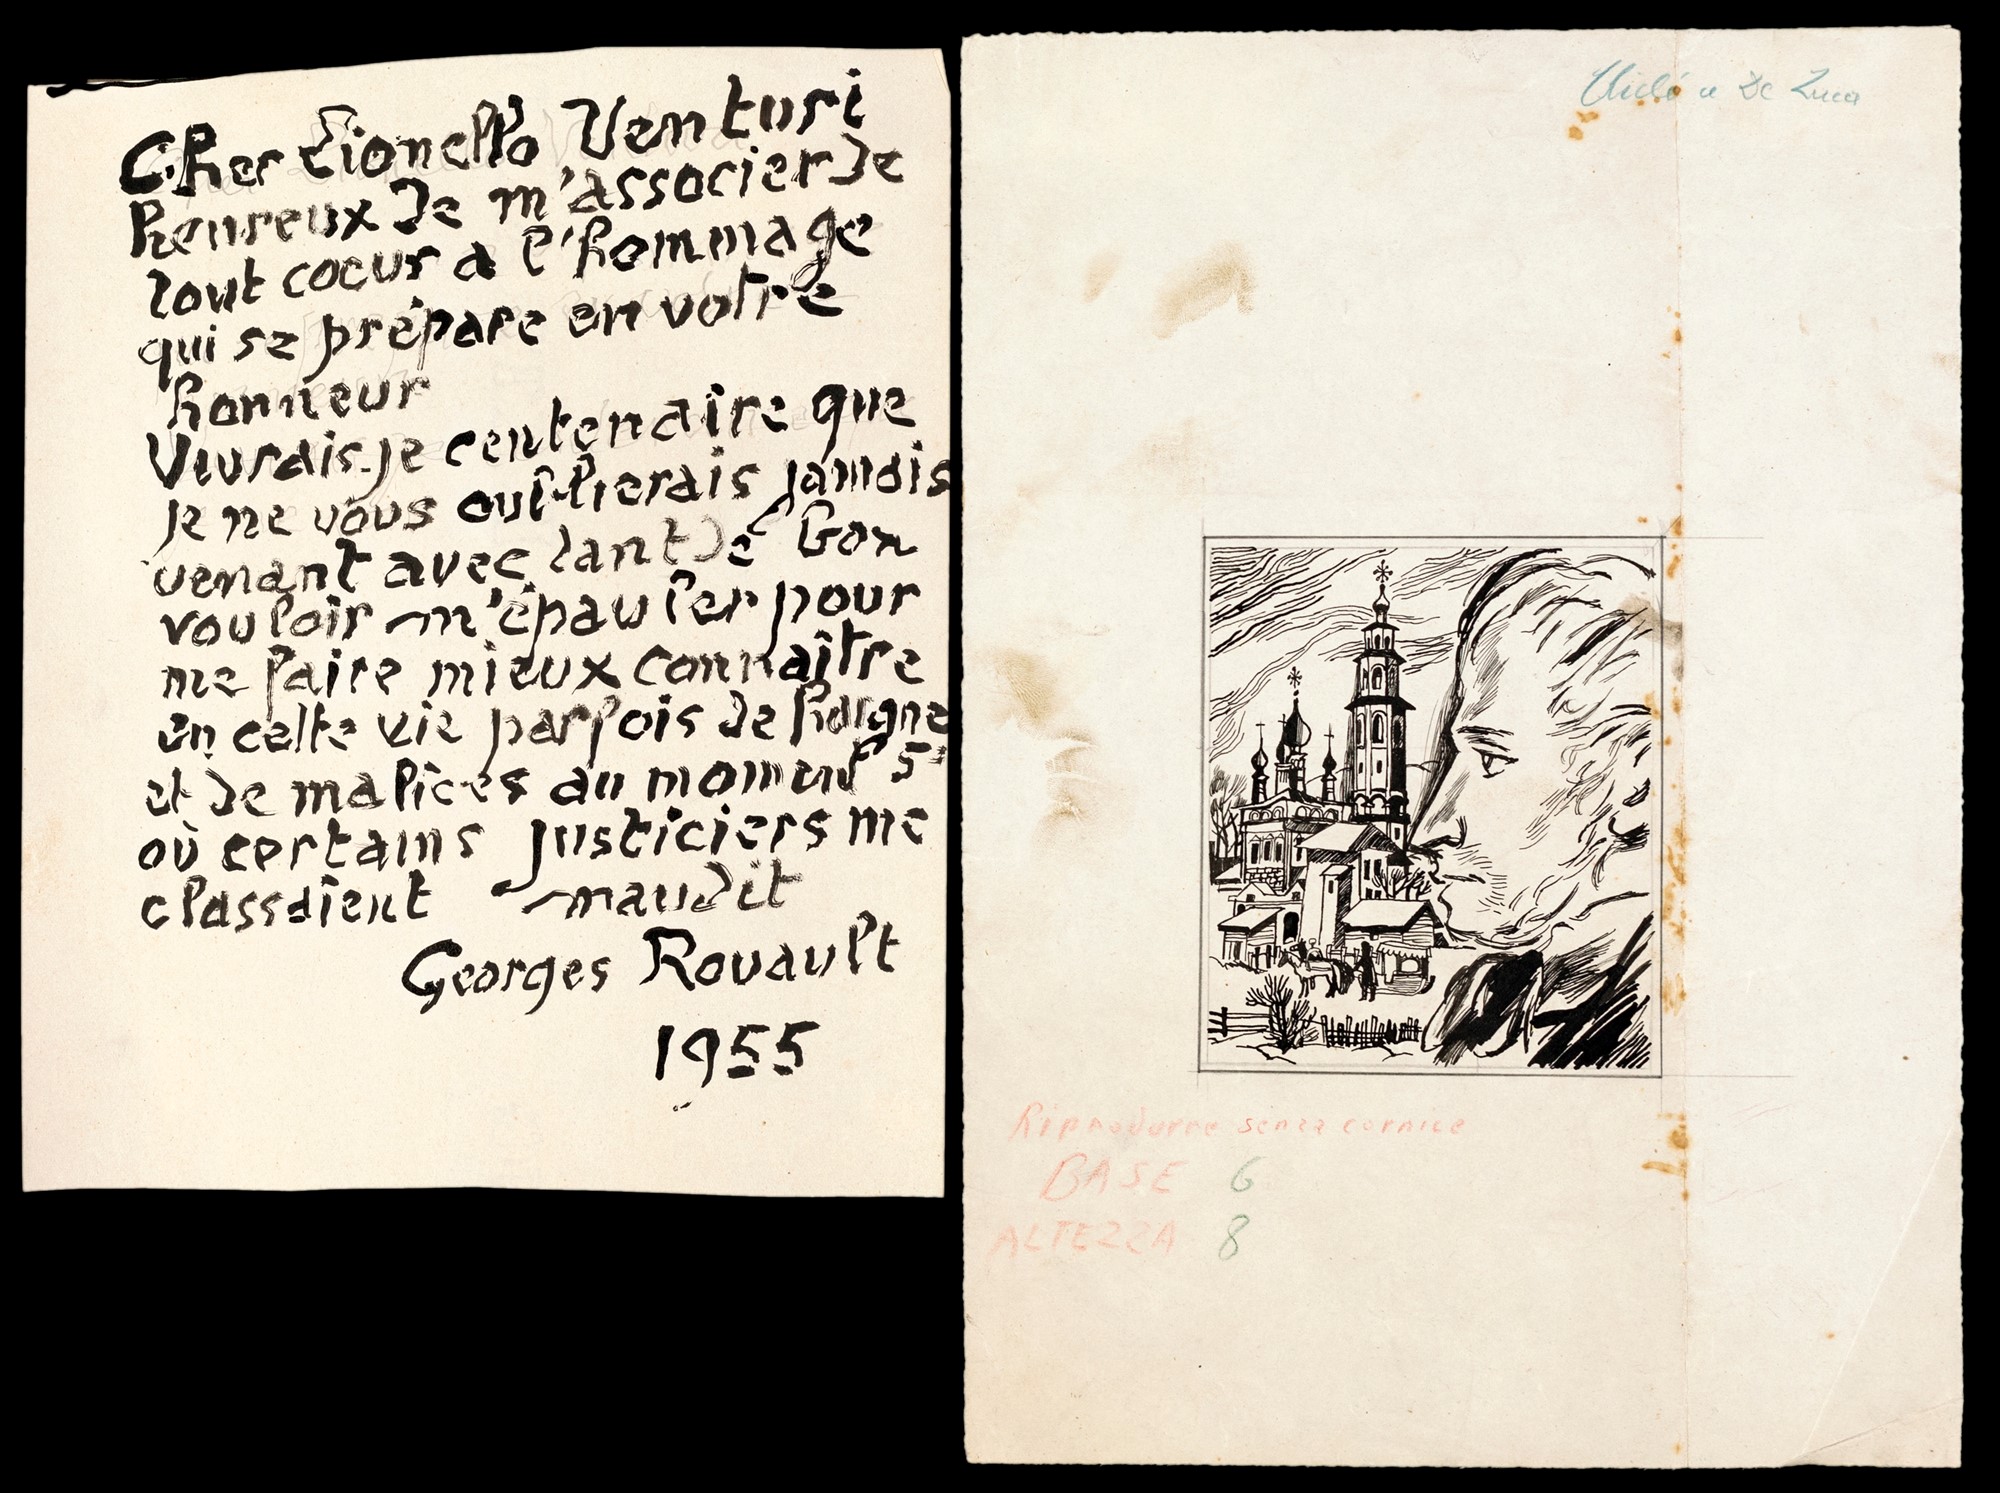 Cher Lionello Venturi
heureux de m'associer de
tout coeur a l'hommage
qui se prépare en votre
honneur
Vivrais-je centenaire que
je ne vous oublierais jamais
venant avec tant de bon
vouloir m'épauler pour
me faire mieux connaître
en cette vie parfois de hargne
et de malices au moment
où certains justiciers me
classaient maudit
Georges Rouault
1955
a De Luca
Riprodurre senza cornice
BASE 6
ALTEZZA 8